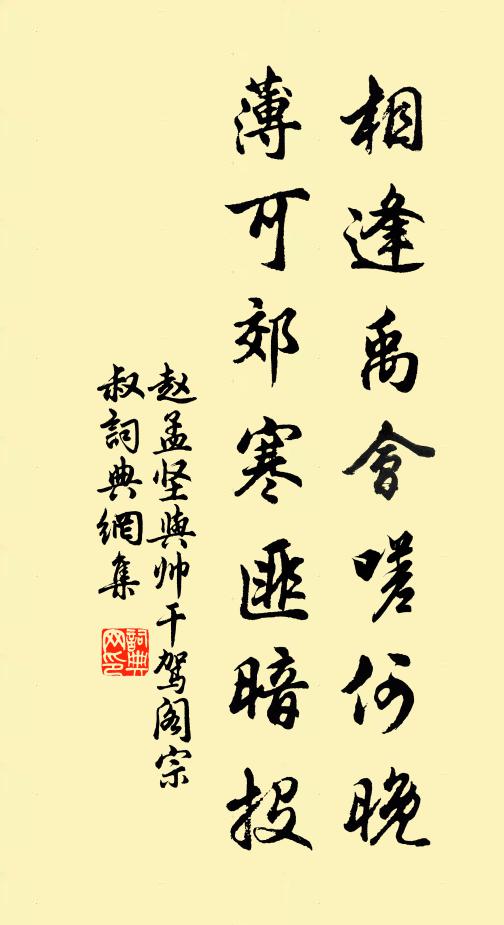 相逢禹會嗟何晚
薄可郊寒匪暗投
赵孟坚與帅干驾阁宗
叔詞典網集
詞典
网印